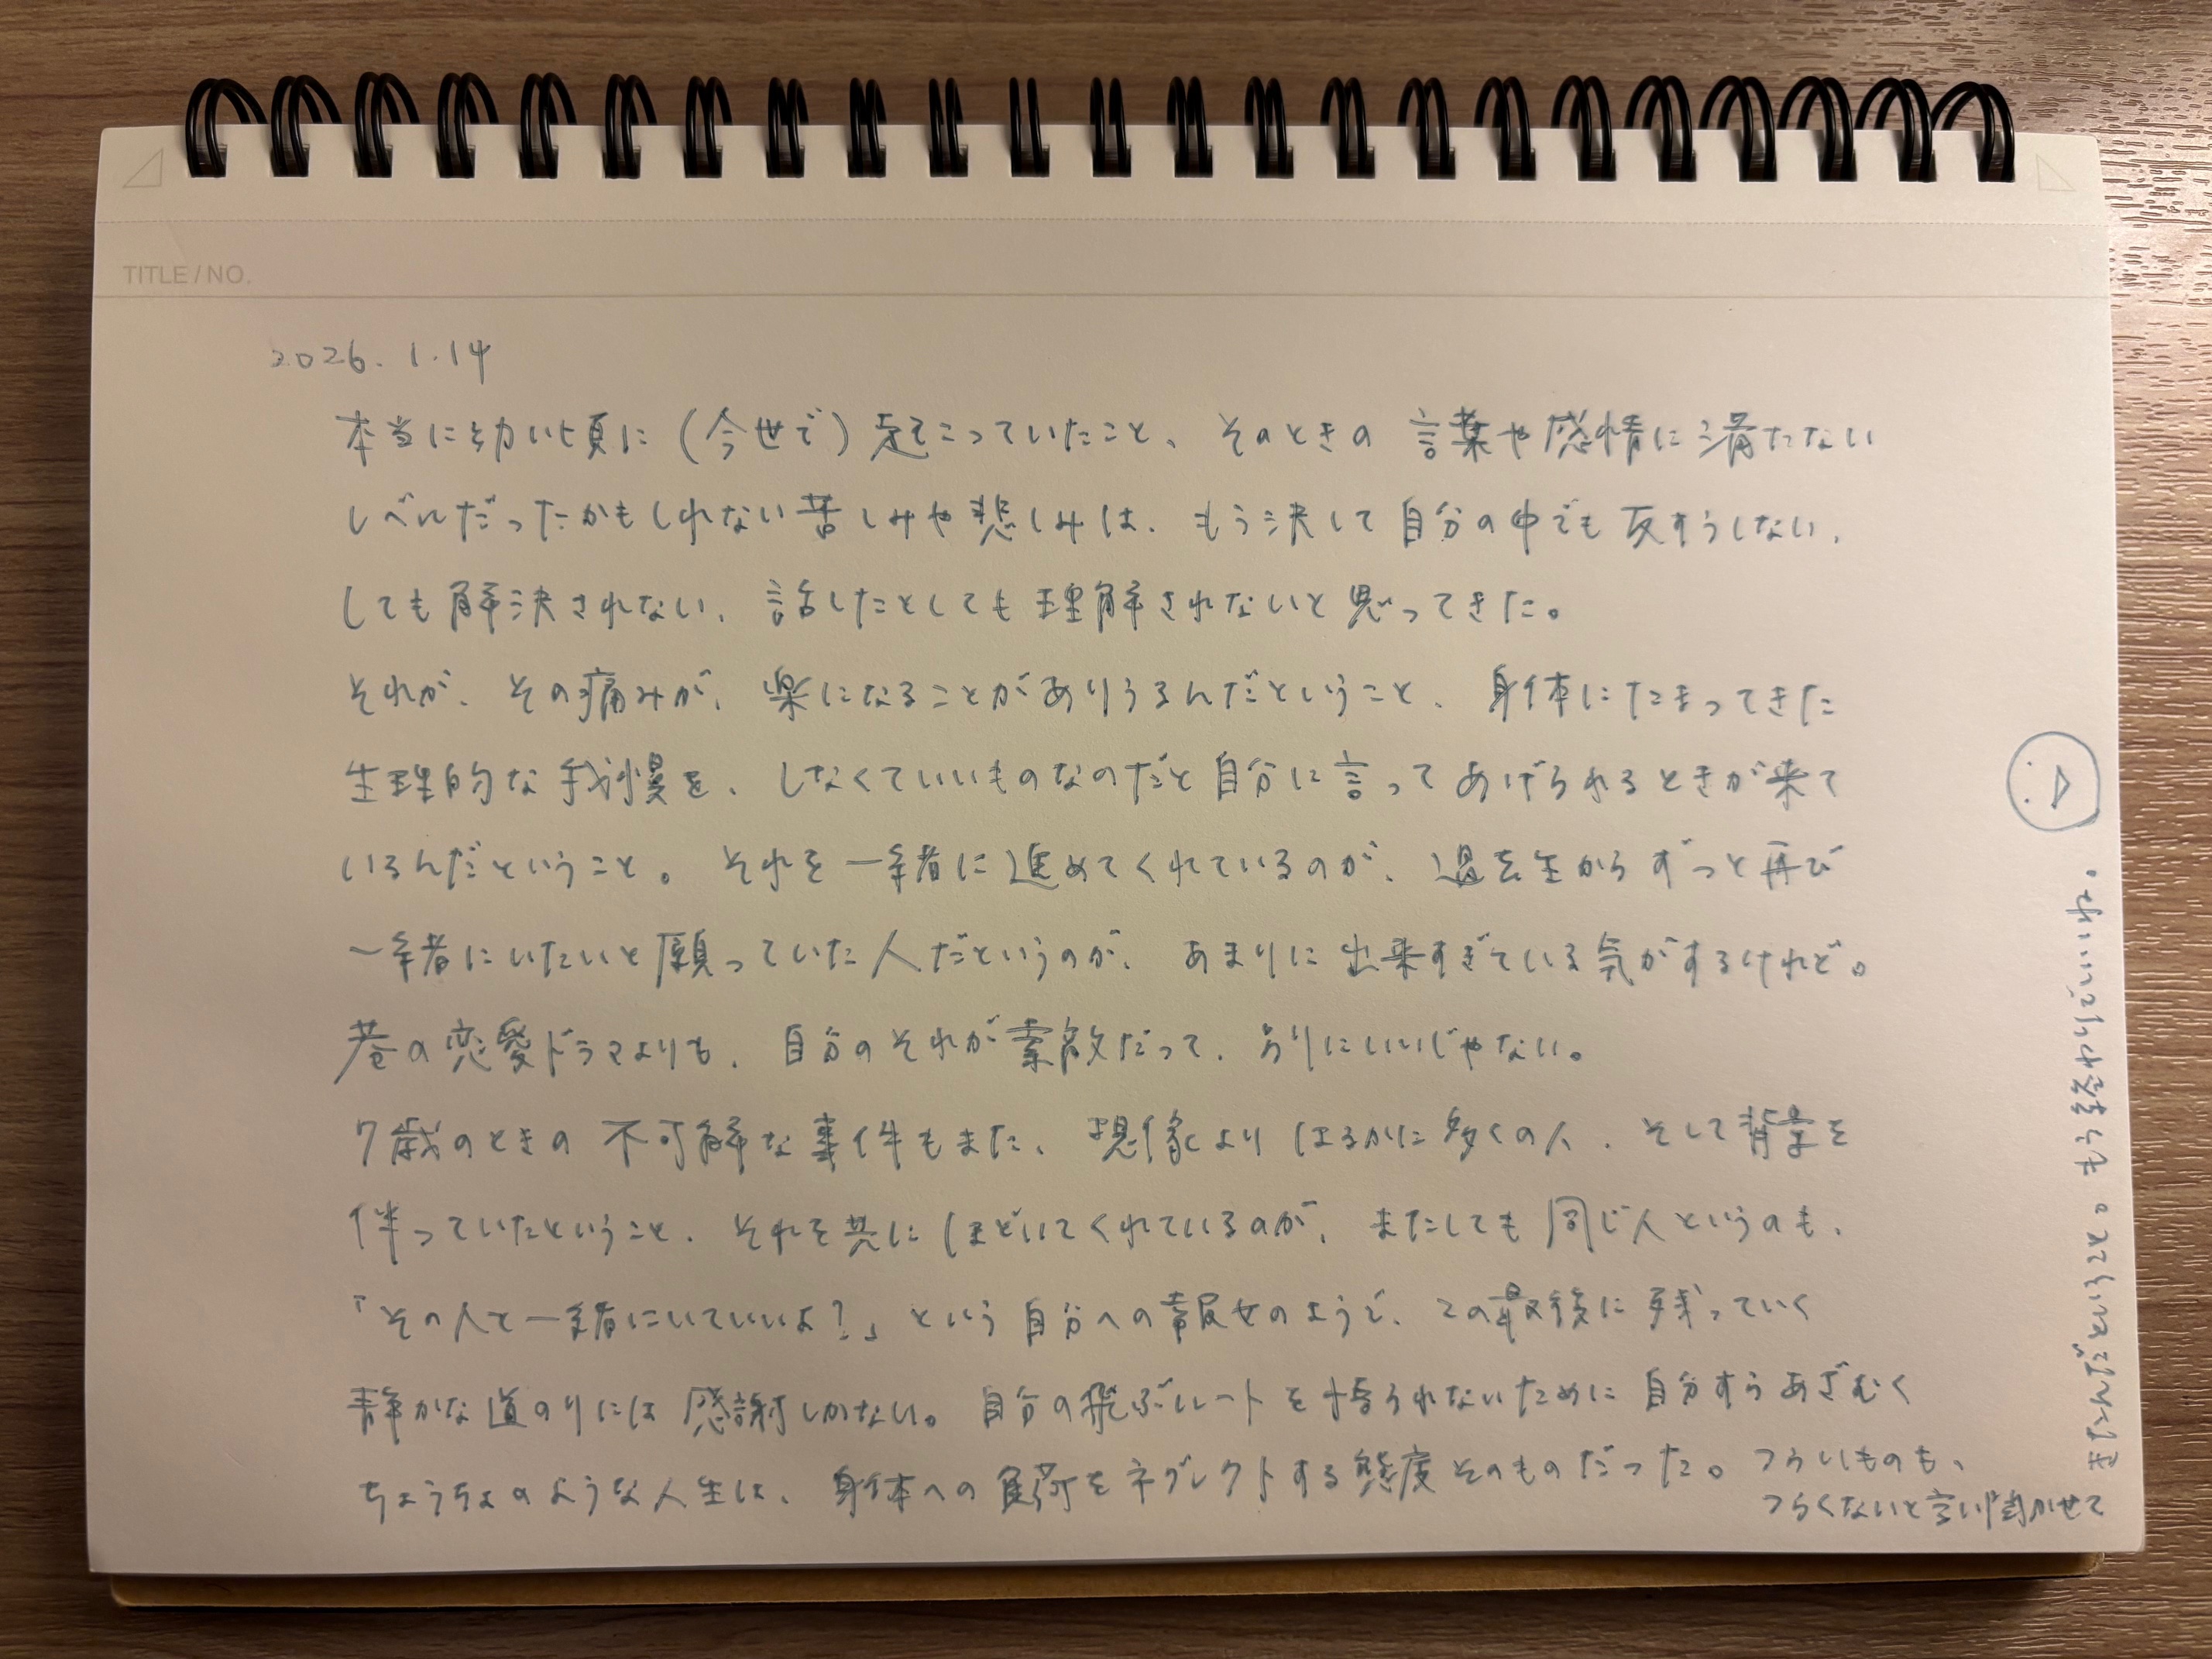 TITLE / NO.
2026. 1. 14
本当に幼い頃に(今世で)起こっていたこと、そのときの言葉や感情に満たない
レベルだったかもしれない苦しみや悲しみは、もう決して自分の中でも反すうしない、
しても解決されない、話したとしても理解されないと思ってきた。
それが、その痛みが、楽になることがありうるんだということ、身体にたまってきた
生理的な我慢を、しなくていいものなのだと自分に言ってあげられるときが来て
いるんだということ。それを一緒に進めてくれているのが、過去生からずっと再び
一緒にいたいと願っていた人だというのが、あまりに出来すぎている気がするけれど。
巷の恋愛ドラマよりも、自分のそれが素敵だって、別にいいじゃない。
7歳のときの不可解な事件もまた、想像よりはるかに多くの人、そして背景を
伴っていたということ、それを共にほどいてくれているのが、またしても同じ人というのも、
「その人と一緒にいていいよ?」という自分への報せのようで、この最後に残っていく
静かな道のりには感謝しかない。自分の飛ぶルートを悟られないために自分すらあざむく
ちょうちょのような人生は、身体への負荷をネグレクトする態度そのものだった。つらいものも、
つらくないと言い聞かせて
きたんだということ。もう終わりでいいね。